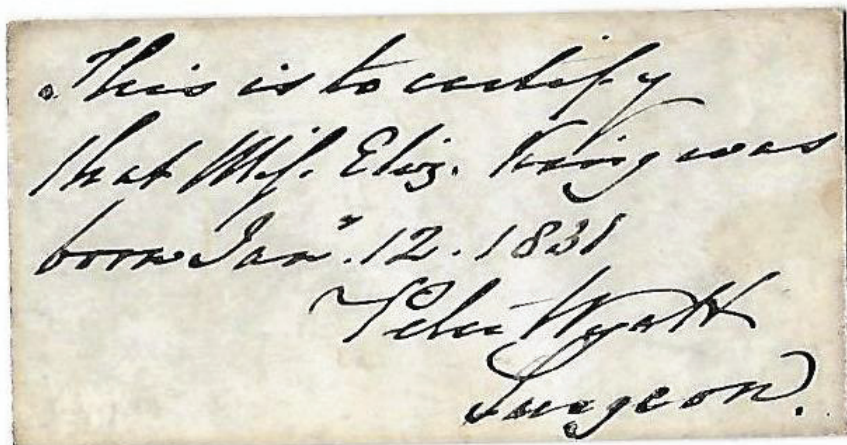 This is to certify
that Miſs. Eliz. King was
born Jany. 12. 1831
Wyatt
Surgeon.